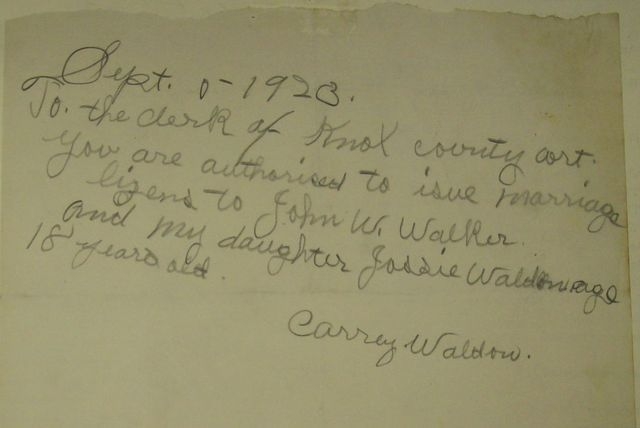 Sept. 0-1923.
To. the clerk of Knox county cort.
you are authorised to isue marriage
lizens to John W. Walker.
and my daughter Jossie Waldow age
18 years old.
Carrey Waldow.